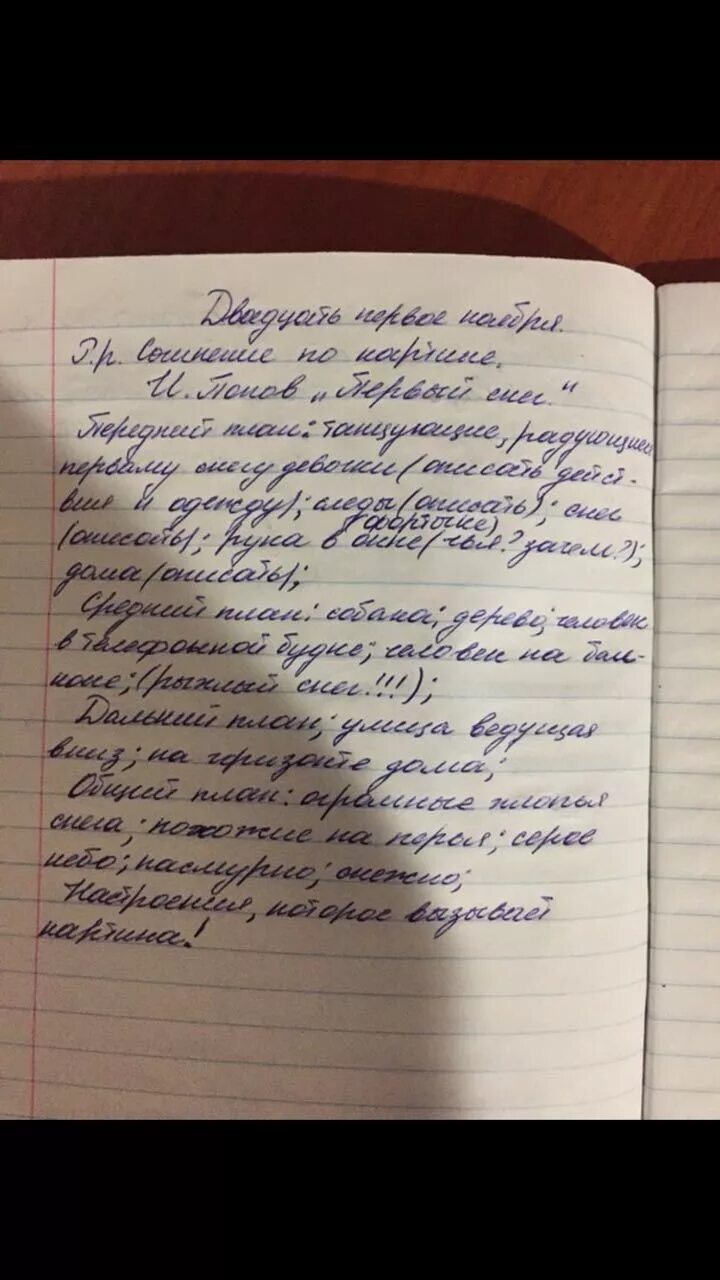 Двадцать первое ноября.
Р.р. Сочинение по картине.
И. Попов „Первый снег."
Передний план: танцующие, радующиеся
первому снегу девочки (описать дейст-
вия и одежду); следы (описать); снег
(форточке)
(описать); рука в окне (чья? зачем?);
дома (описать);
Средний план: собака; дерево; человек
в телефонной будке; человек на бал-
коне; (рыхлый снег!!!);
Дальний план; улица ведущая
вниз; на горизонте дома;
Общий план: огромные хлопья
снега; похожие на перья; серое
небо; пасмурно; снежно;
Настроения, которое вызывает
картина!